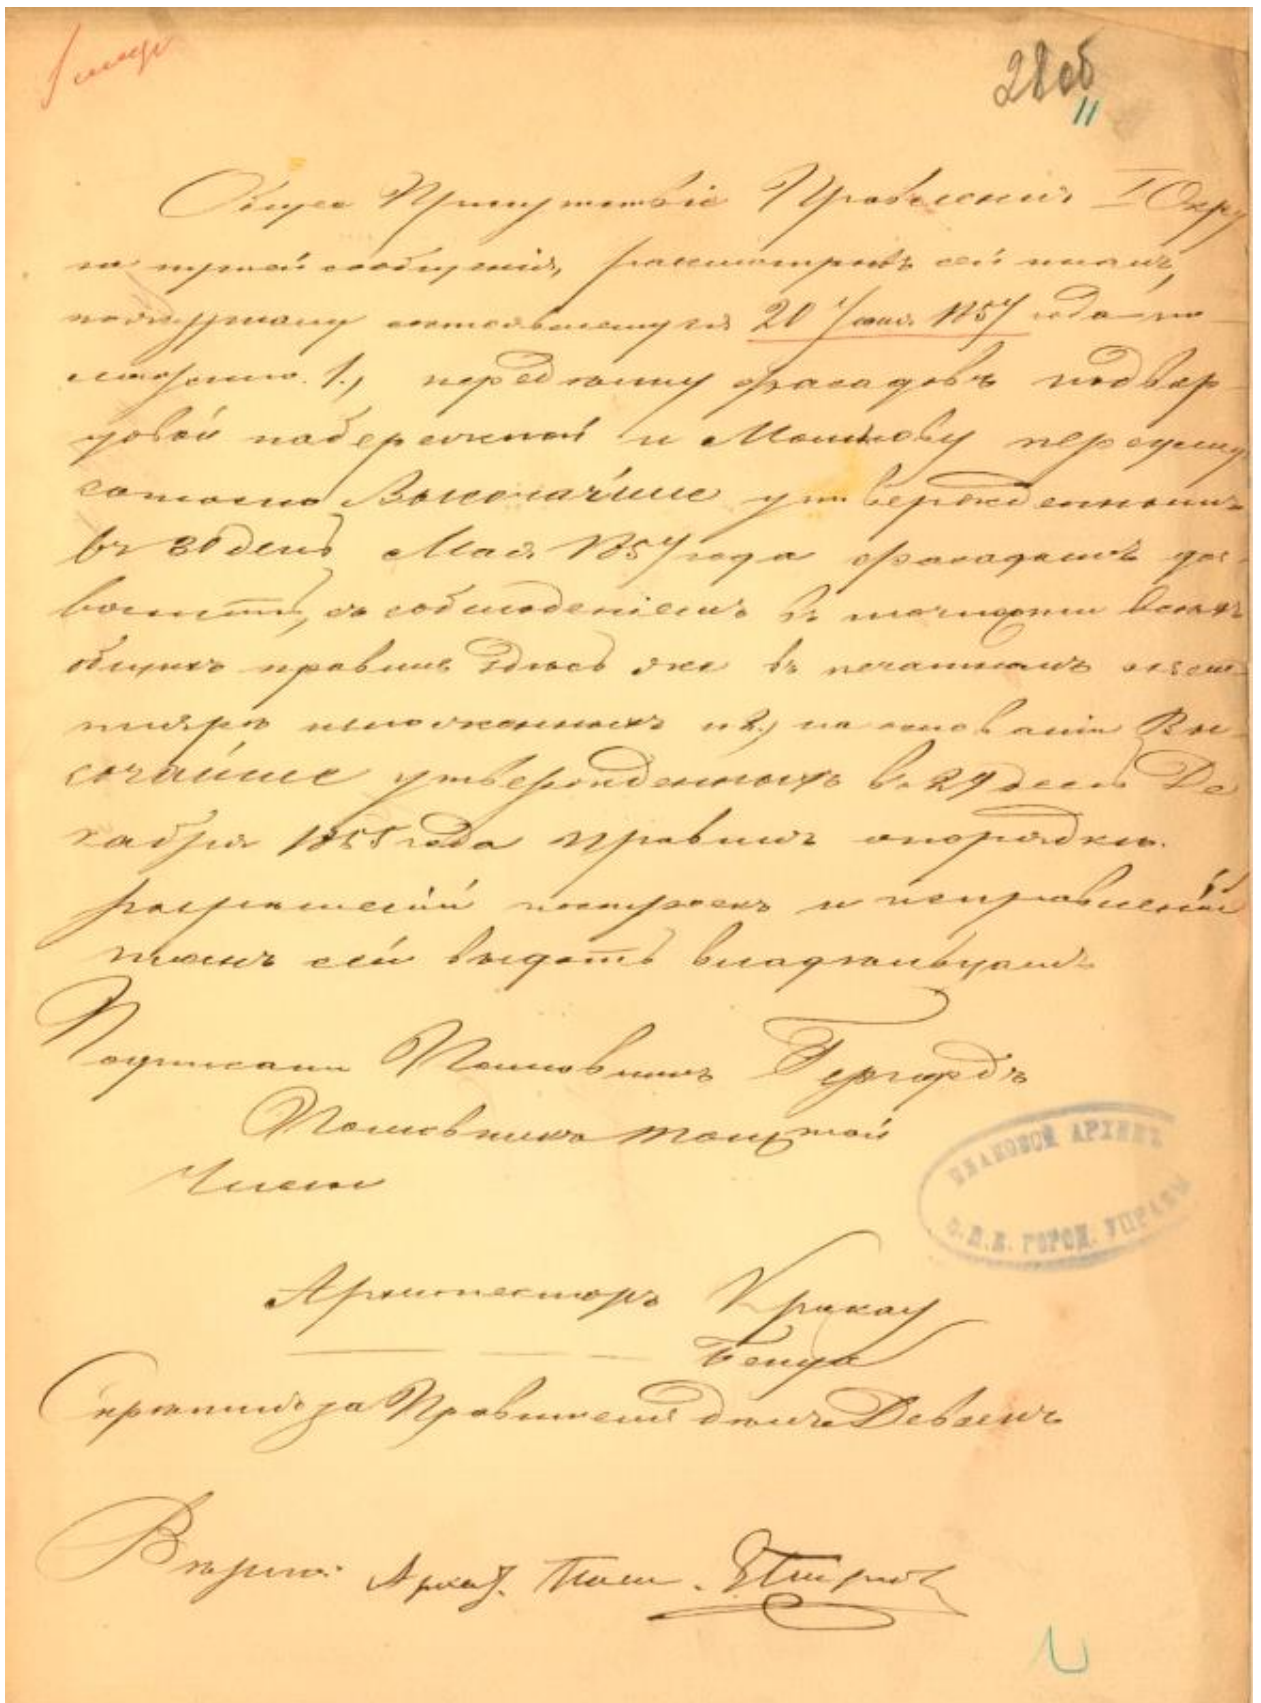 28 об
11
Общее Присутствіе Правленія I Окру
га путей сообщенія, разсмотревъ сей планъ,
по журналу состоявшемуся 20 Іюня 1857 года по
становило: 1., передѣлку фасадовъ по двор
цовой набережной и Мошкову переулку
согласно Высочайше утвержденнымъ
въ 30 день Мая 1857 года фасадамъ доз
волить, съ соблюденіемъ въ точности всѣхъ
общихъ правилъ здѣсь же въ печатномъ экзем
плярѣ изложенныхъ и 2., на основаніи Вы
сочайше утвержденныхъ въ 29 день Де
кабря 1855 года правилъ о порядкѣ
разрѣшеній построекъ и исправленій
планъ сей выдать владѣльцамъ
Подписали Полковникъ Гергардъ
Полковникъ Толстой
Члены
Архитекторъ Кракау
Бенуа
Скрѣпилъ за Правителя дѣлъ Девлинъ
Вѣрно:
ПЛАНОВОЙ АРХИВЪ
С.П.Б. ГОРОД. УПРАВЫ